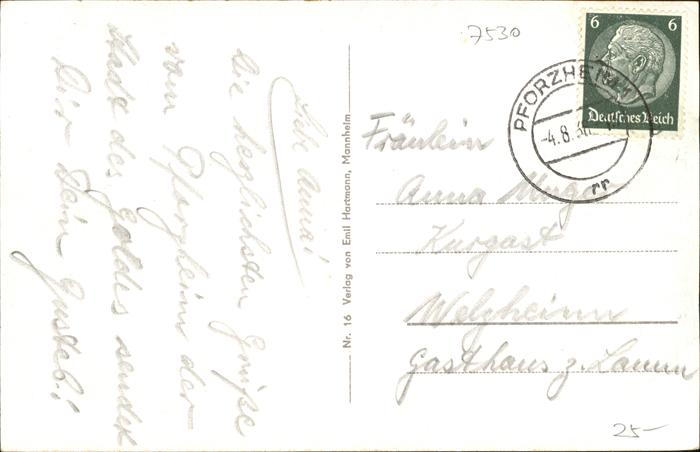 7530
6 6
Deutsches Reich
PFORZHEIM
-4.8.
rr
Liebe Anna!
Die herzlichsten Grüße
vom Pforzheim der
Stadt des Goldes sendet
Dir Dein Gustel!
Nr. 16 Verlag von Emil Hartmann, Mannheim
Fräulein
Anna
Kurgast
Welzheim
Gasthaus z. Lamm
25-